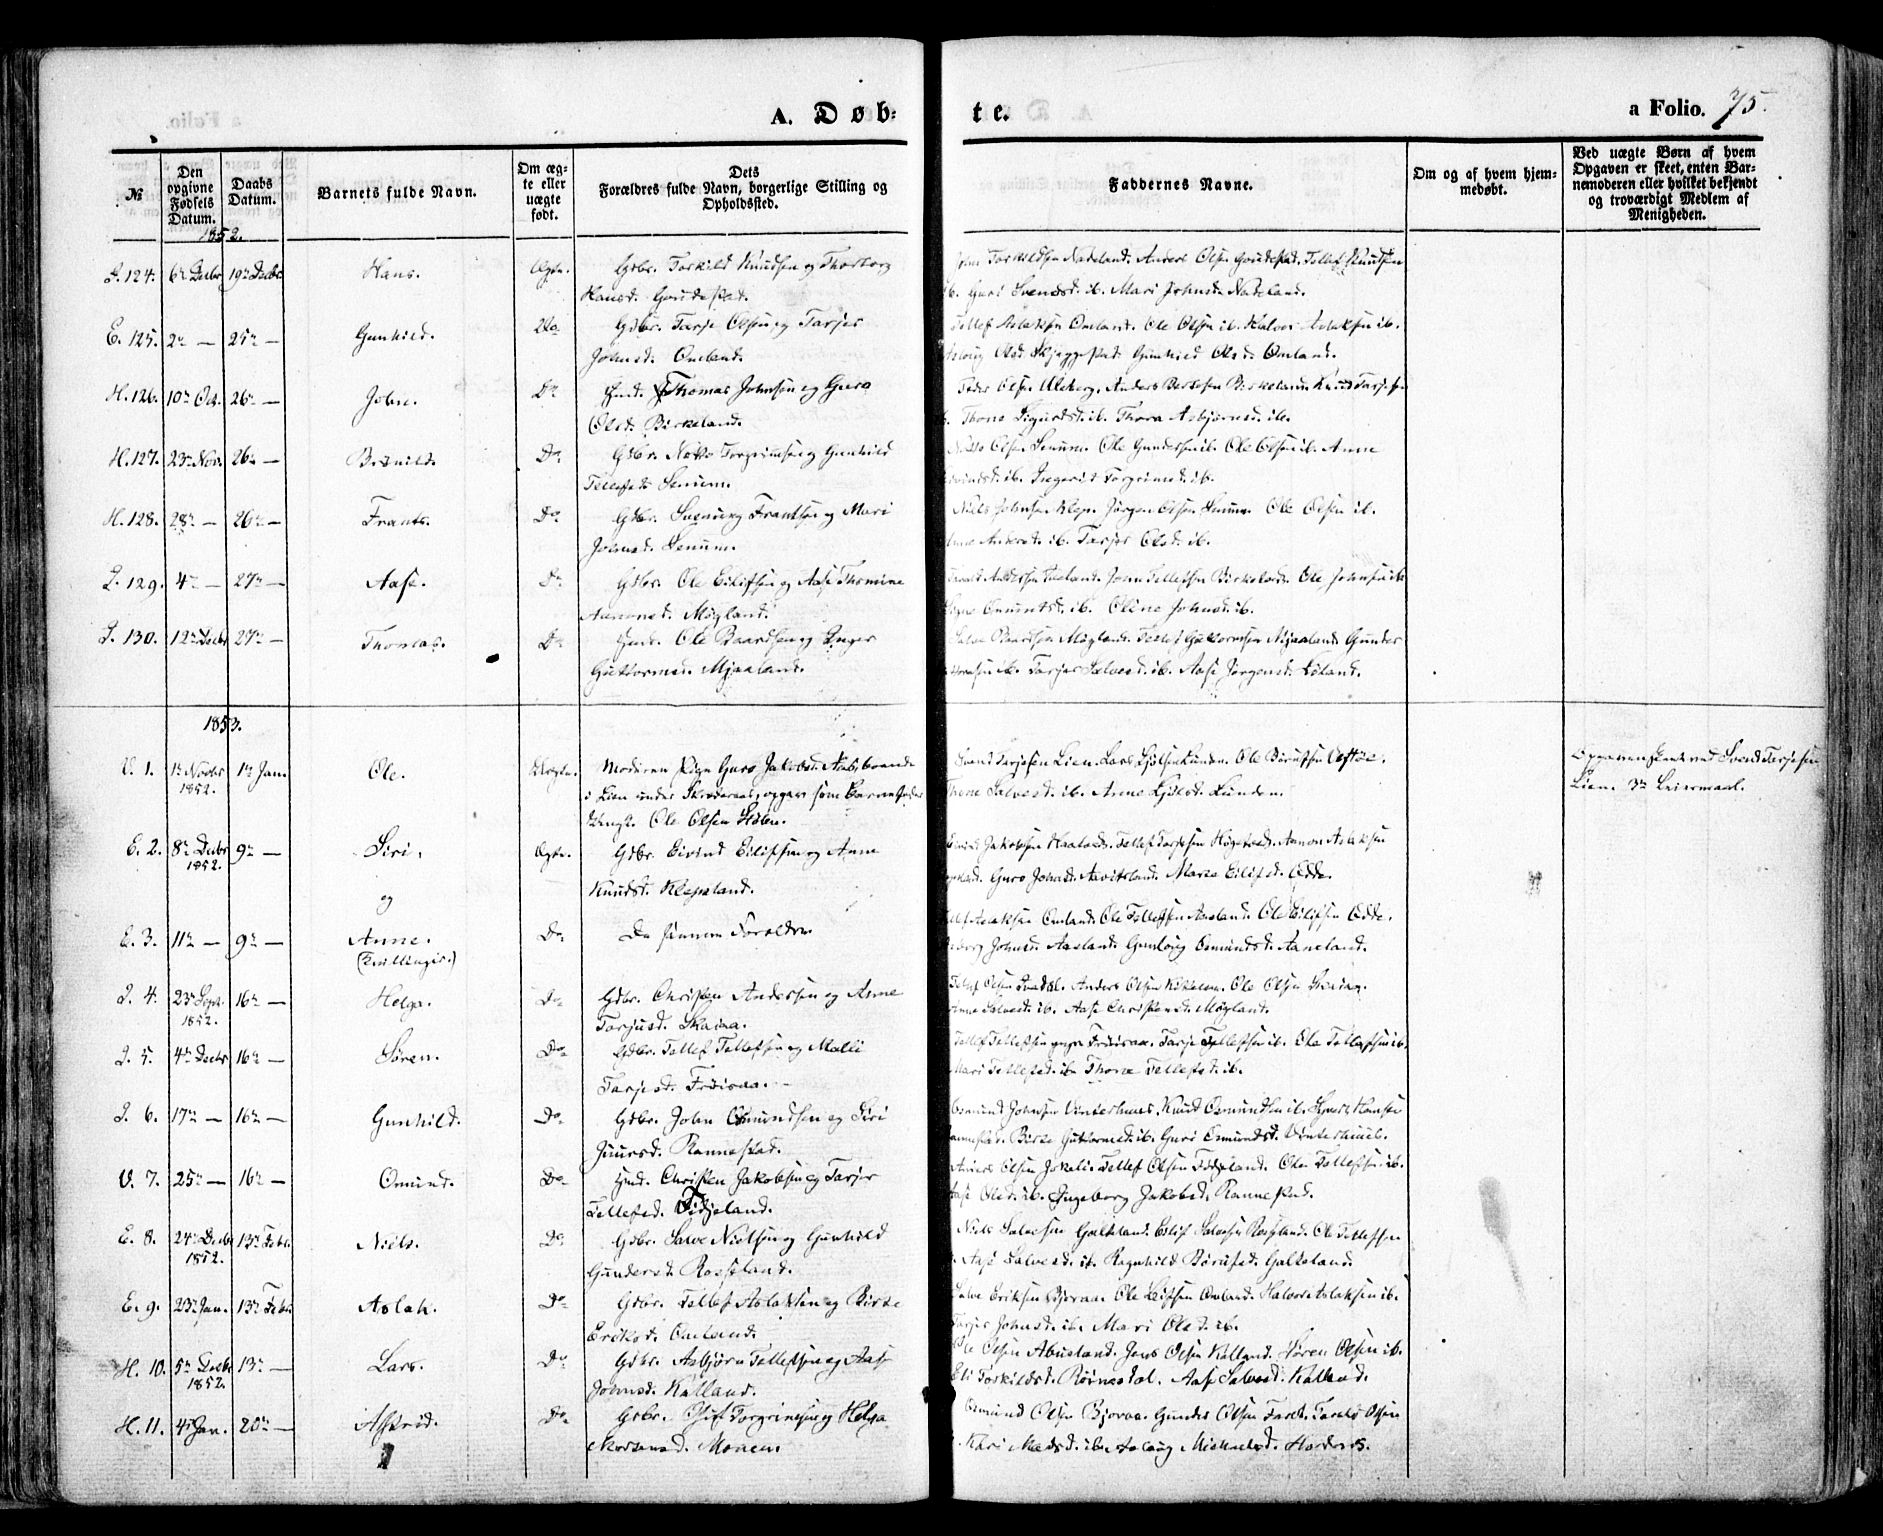 A. Døb-
te.
a Folio. 75.
№
Den opgivne Fødsels Datum.
Daabs Datum.
Barnets fulde Navn.
Om ægte eller uægte født.
Dets Forældres fulde Navn, borgerlige Stilling og Opholdssted.
Faddernes Navne.
Om og af hvem hjemmedøbt.
Ved uægte Børn af hvem Opgaven er skeet, enten Barnemoderen eller hvilket bekjendt og troværdigt Medlem af Menigheden.
1852.
124. 6te Decbr 19de Decbr Hans. Ægte. Gdbr. Torkild Knudsen og Thorborg
Hansd. Goudestad.
Torkildsen Nateland. Anders Olsen Goudestad. Tellef Knudsen
ib. Guri Svendsd. ib. Mari Johnsd. Nateland.
E. 125. 2den — 25de — Gunhild. Do Gdbr. Tarje Olsen og Tarjer
Johnsd. Omland.
Tellef Aslaksen Omland. Ole Olsen ib. Halvor Aslaksen ib.
Aslaug Olsd. Skjeggestad. Gunhild Olsd. Omland.
H. 126. 10de Oct. 26de — John. Do Thomas Johnsen og Guro
Olsd. Birkeland.
Peder Olsen Uleberg. Anders Birkeland. Knud Tarjes.
ib. Thone Sigurdsd. ib. Thora Asbjørnsd. ib.
H. 127. 23de Nov. 26de — Do Gdbr. Torgrimsen og Gunhild
Tellefsd. Senum.
Olsen Senum. Ole Gundersen ib. Ole Olsen ib. Anne
ib. Ingerid Torgrimsd. ib.
H. 128. 28de — 26de — Frants. Do Gdbr. Svenung Frantsen og Mari
Johnsd. Senum.
Niels Johnsen Klep. Jørgen Olsen Senum. Ole Olsen ib.
Anne Andersd. ib. Tarjer Olsd. ib.
129. 4de — 27de — Aase. Do Gdbr. Ole Eilifsen og Aase Thomine
Aanonsd. Møgland.
John Tellefsen Birkeland. Ole Johnsen ib.
Signe Osmundsd. ib. Oline Johnsd. ib.
130. 12te Decbr 27de — Thomas. Do Ole Baardsen og Inger
Guttormsd. Mjaaland.
Salve Baardsen Møgland. Tellef Guttormsen Mjaaland. Gunder
ib. Tarjer Salvesd. ib. Aase Jørgensd. Løland.
1853.
V. 1. 1ste Novbr 1852. 1ste Jan. Ole. Uægte. Moderen Pige Guro Jakobsd. Aabelvande
i Lien under Skrøderaas, opgav som Barnefader
Ungk. Ole Olsen
Svend Tarjesen Lien. Lars Kjølsen Lunden. Ole Børufsen Oftøe.
Thone Salvesd. ib. Anne Kjølsd. Lunden.
Opgaven skeet ved Svend Terjesen
Lien. 3de Leiermaal.
E. 2. 8de Decbr 1852. 9de — Siri. Ægte. Gdbr. Eivind Eilifsen og Anne
Knudsd. Klepsland.
Jakobsen Haaland. Tellef Tarjesen Høgetved. Aanon Aslaksen
Guro Johnsd. Aavitsland. Marie Eilifsd. Odde.
og
E. 3. 11te — 9de — Anne. (Tvillinger.) Do De samme Forældre
Aslaksen Omland. Ole Tellefsen Aasland. Ole Eilifsen Odde.
Johnsd. Aasland. Gunlaug Osmundsd. Aaneland.
4. 23de Sept. 1852. 16de — Helga. Do Gdbr. Christen Andersen og Anne
Tarjusd. Skaiaa.
Tellef Olsen Anders Olsen Ole Olsen Skaiaa.
Anne Salvesd. ib. Aase Christensd. Møgland.
5. 4de Decbr 16de — Søren. Do Gdbr. Tellef Tellefsen og Malli
Tarjesd. Frøisaa.
Tellef Tellefsen yngre Frøisaa. Tarje Tellefsen ib. Ole Tellefsen ib.
Mari Tellefsd. ib. Thone Tellefsd. ib.
6. 17de — 16de — Gunhild. Do Gdbr. John Osmundsen og Siri
Juursd. Rannestad.
Osmund Johnsen Vinterhuus. Knud Osmundsen ib. Sjurt Hansen
Rannestad. Birte Guttormsd. ib. Guri Osmundsd. Vinterhuus.
V. 7. 25de — 16de — Osmund. Do Christen Jakobsen og Tarjer
Tellefsd. Fidjeland.
Anders Olsen Jokeli. Tellef Olsen Fidjeland. Ole Tellefsen ib.
Aase Olsd. ib. Ingeborg Jakobsd. Rannestad.
E. 8. 24de Decbr 1852. 13de Febr. Niels. Do Gdbr. Salve Nielsen og Gunhild
Gundersd. Rosseland.
Niels Salvesen Galteland. Eilif Salvesen Rosseland. Ole Tellefsen
Aase Salvesd. ib. Ragnhild Børufsd. Galteland.
E. 9. 23de Jan. 13de Febr. Aslak. Do Gdbr. Tellef Aslaksen og Birte
Eriksd. Omland.
Salve Eriksen Bjoraa. Ole Leifsen Omland. Halvor Aslaksen ib.
Tarjer Johnsd. ib. Mari Olsd. ib.
H. 10. 5te Decbr 1852. 13de — Lars. Do Gdbr. Asbjørn Tellefsen og Aase
Johnsd. Katland.
Ole Olsen Abusland. Jens Olsen Katland. Søren Olsen ib.
Eli Torkildsd. Røinesdal. Aase Salvesd. Katland.
H. 11. 4de Jan. 20de — Astrid. Do Gdbr. Osuf Torgrimsen og Helga
Mortensd. Moneen
Osmund Olsen Bjoraa. Gunder Olsen Faret. Tarald Olsen
Kari Madsd. ib. Aslaug Michelsd. Hordnes.